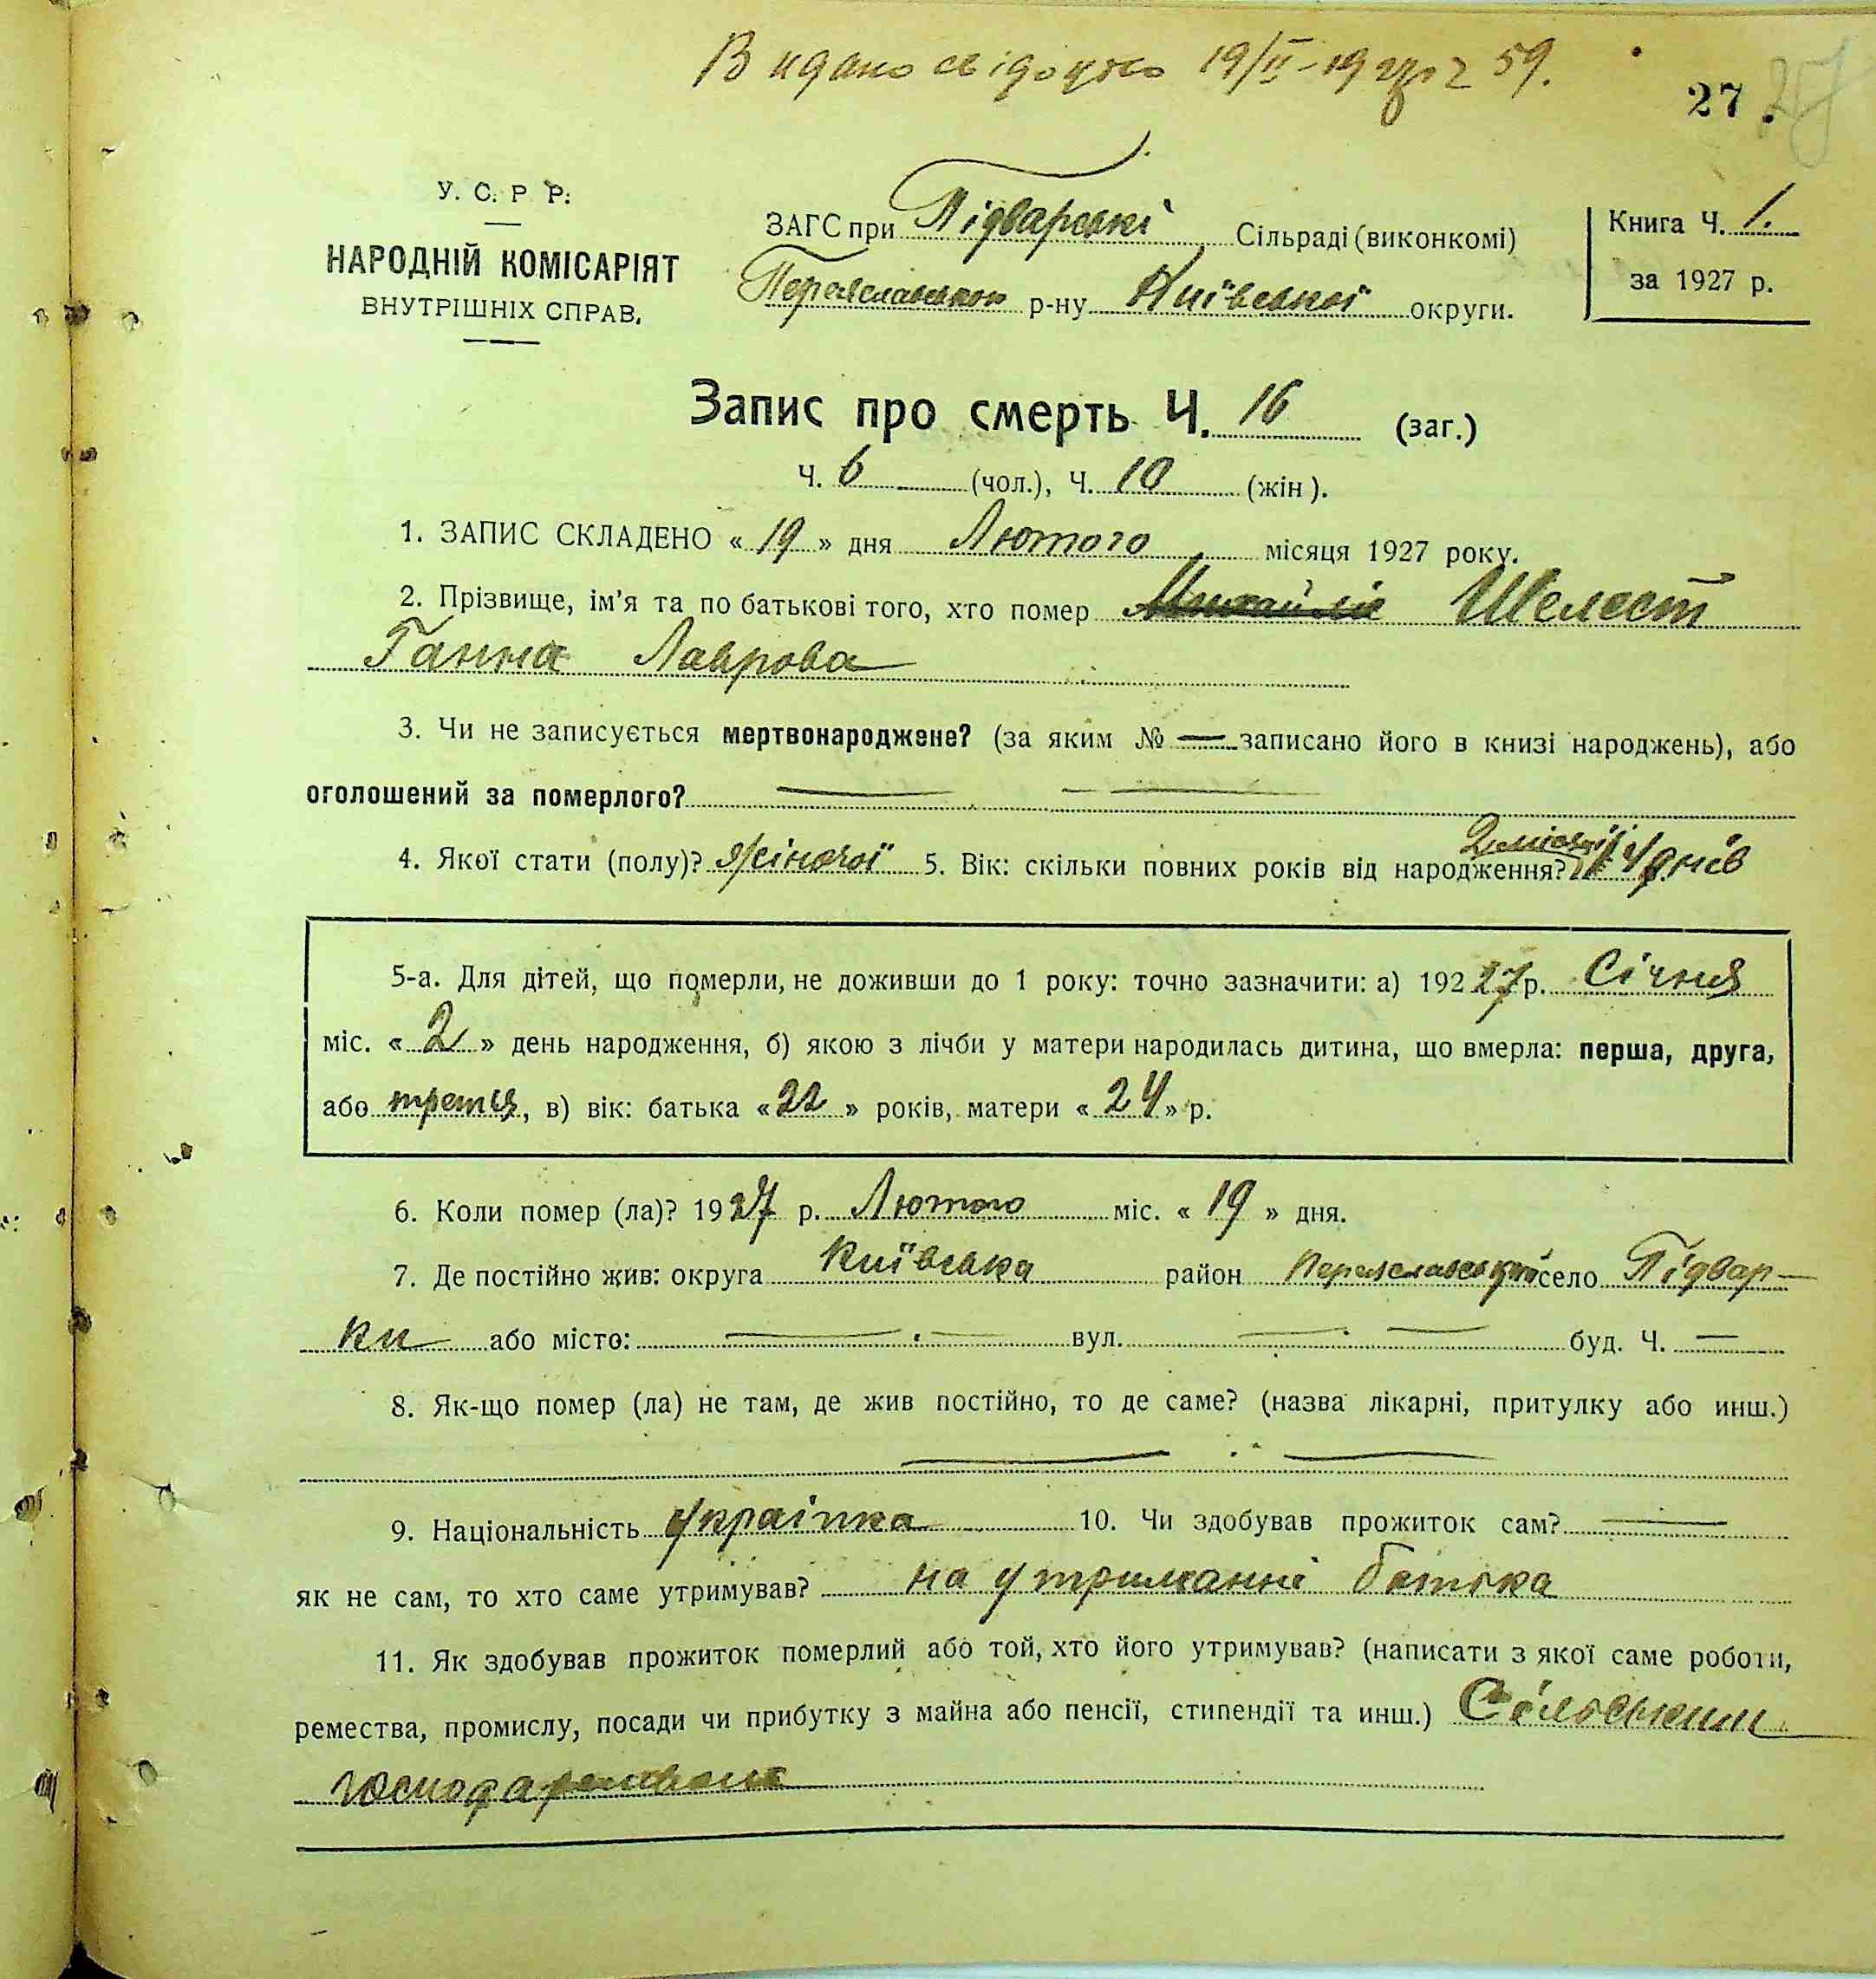 Видано свідоцтво 19/II-1927 р. 59.
27.
27
У. С. Р. Р.
НАРОДНІЙ КОМІСАРІЯТ
ВНУТРІШНІХ СПРАВ.
ЗАГС при Підварські Сільраді (виконкомі)
Переяславськом р-ну Київської округи.
Книга Ч. 1.
за 1927 р.
Запис про смерть Ч. 16 (заг.)
Ч. 6 (чол.), Ч. 10 (жін).
1. ЗАПИС СКЛАДЕНО « 19 » дня Лютого місяця 1927 року.
2. Прізвище, ім'я та по батькові того, хто помер Шелест
Ганна Лаврова
3. Чи не записується мертвонароджене? (за яким № — записано його в книзі народжень), або
оголошений за померлого?
4. Якої стати (полу)? жіночої 5. Вік: скільки повних років від народження? 14 днів
5-а. Для дітей, що померли, не доживши до 1 року: точно зазначити: а) 192 27 р. Січня
міс. « 2 » день народження, б) якою з лічби у матери народилась дитина, що вмерла: перша, друга,
або третя, в) вік: батька « 22 » років, матери « 24 » р.
6. Коли помер (ла)? 1927 р. Лютого міс. « 19 » дня.
7. Де постійно жив: округа Київська район Переяславський село Підвар-
ки або місто: вул. буд. Ч. —
8. Як-що помер (ла) не там, де жив постійно, то де саме? (назва лікарні, притулку або инш.)
9. Національність Українка 10. Чи здобував прожиток сам? —
як не сам, то хто саме утримував? на утриманні батька
11. Як здобував прожиток померлий або той, хто його утримував? (написати з якої саме роботи,
ремества, промислу, посади чи прибутку з майна або пенсії, стипендії та инш.) Сільським
господарством